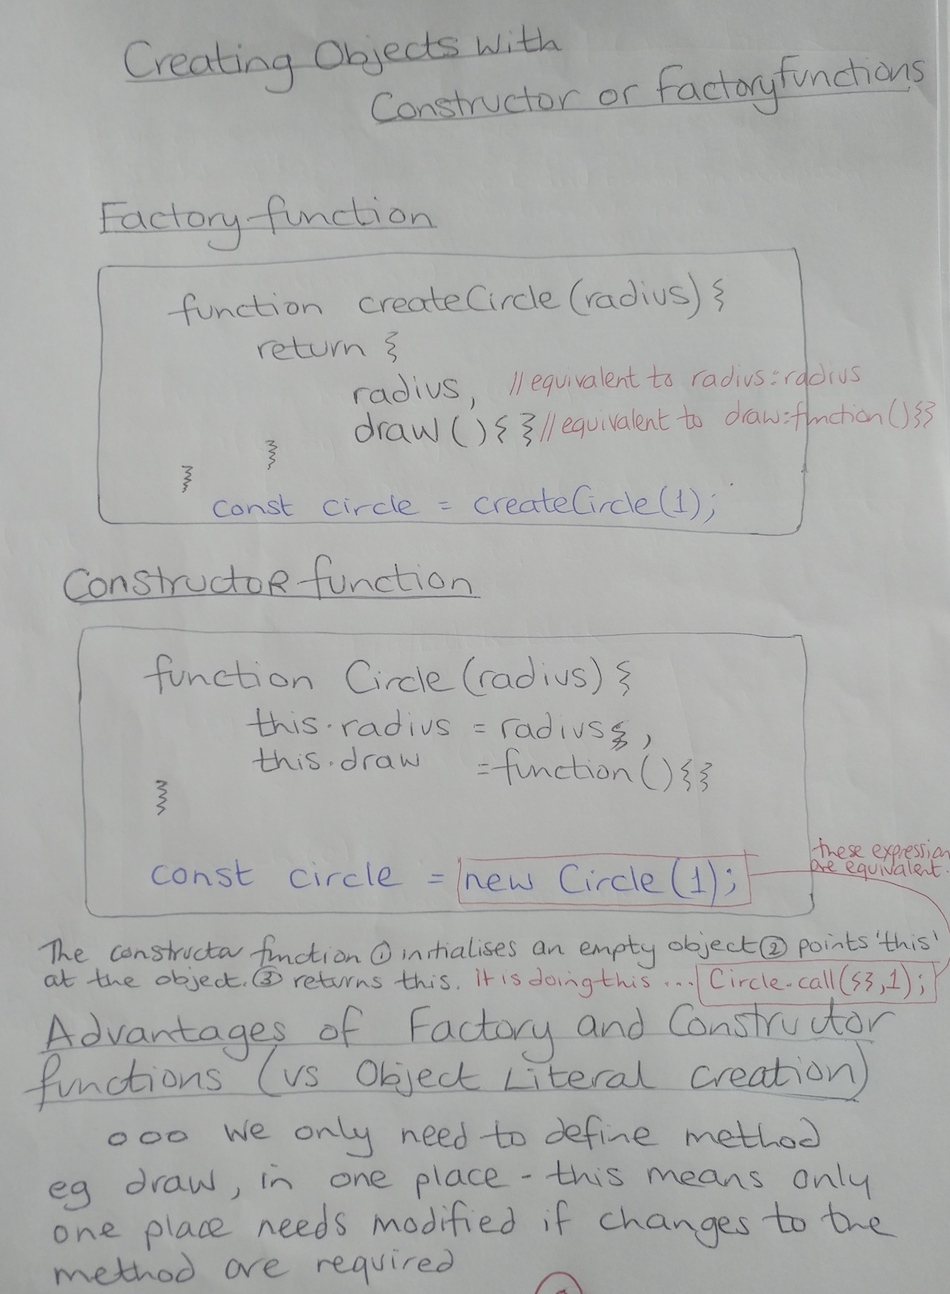 Creating Objects with
Constructor or Factory functions
Factory function
function createCircle (radius) {
return {
radius, // equivalent to radius: radius
draw () { } // equivalent to draw: function () {}
}
}
const circle = createCircle (1);
Constructor function
function Circle (radius) {
this.radius = radius,
this.draw = function () {}
}
const circle = new Circle (1);
these expression
are equivalent.
The constructor function ① initialises an empty object ② points 'this'
at the object. ③ returns this. it is doing this ... Circle.call({}, 1);
Advantages of Factory and Constructor
functions (vs Object Literal creation)
ooo we only need to define method
eg draw, in one place - this means only
one place needs modified if changes to the
method are required